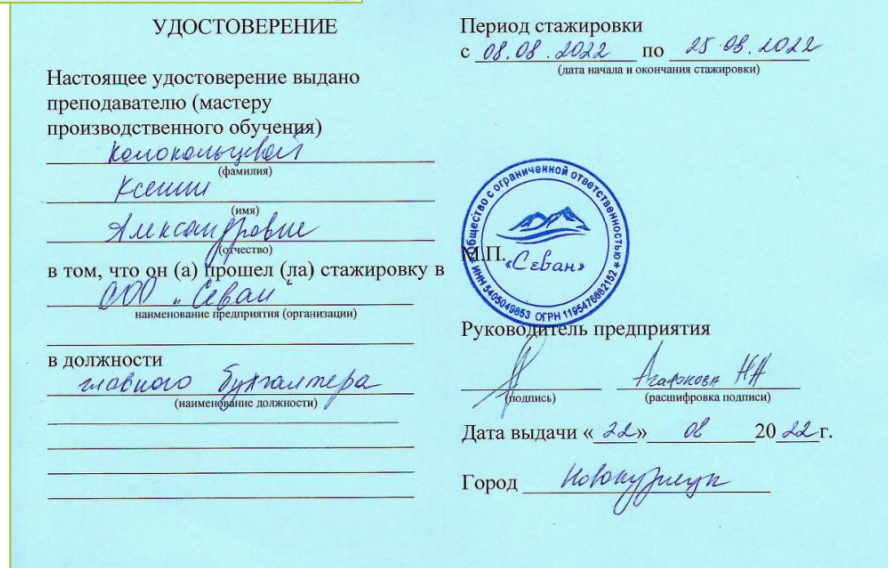 УДОСТОВЕРЕНИЕ
Настоящее удостоверение выдано
преподавателю (мастеру
производственного обучения)
Колокольцевой
(фамилия)
Ксении
(имя)
Александровне
(отчество)
в том, что он (а) прошел (ла) стажировку в
ООО "Севан"
наименование предприятия (организации)
в должности
главного бухгалтера
(наименование должности)
Период стажировки
с 08.08.2022 по 25.08.2022
(дата начала и окончания стажировки)
Общество с ограниченной ответственностью
М.П.
«Севан»
ИНН 5405049853 ОГРН 1195476682152
Руководитель предприятия
Агафонова НА
(подпись) (расшифровка подписи)
Дата выдачи « 22» 08 2022г.
Город Новокузнецк